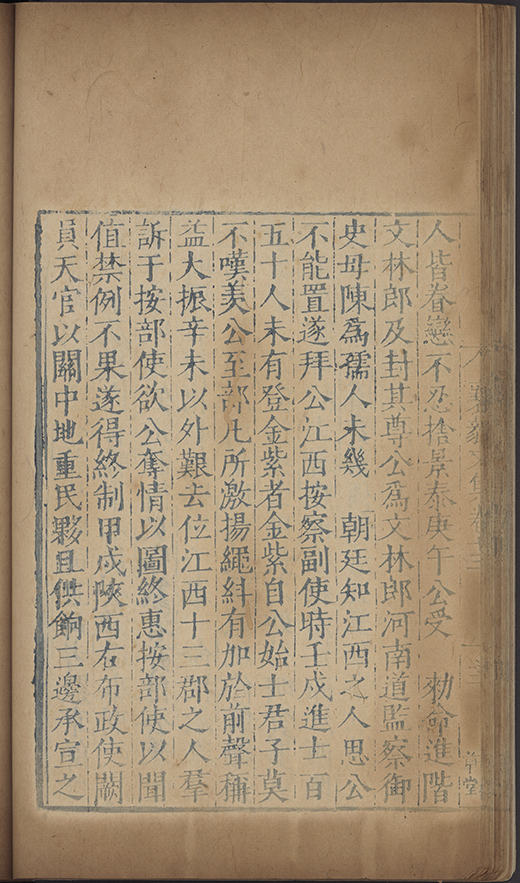 人皆眷戀不忍捨景泰庚午公受　勑命進階
文林郎及封其尊公爲文林郎河南道監察御
史母陳爲孺人未幾　朝廷知江西之人思公
不能置遂拜公江西按察副使時壬戌進士百
五十人未有登金紫者金紫自公始士君子莫
不嘆羙公至部凡所激揚繩糾有加於前聲稱
益大振辛未以外艱去位江西十三郡之人羣
訴于按部使欲公奪情以圖終惠按部使以聞
值禁例不果遂得終制甲戌陝西右布政使闕
員天官以關中地重民夥且供餉三邊承宣之